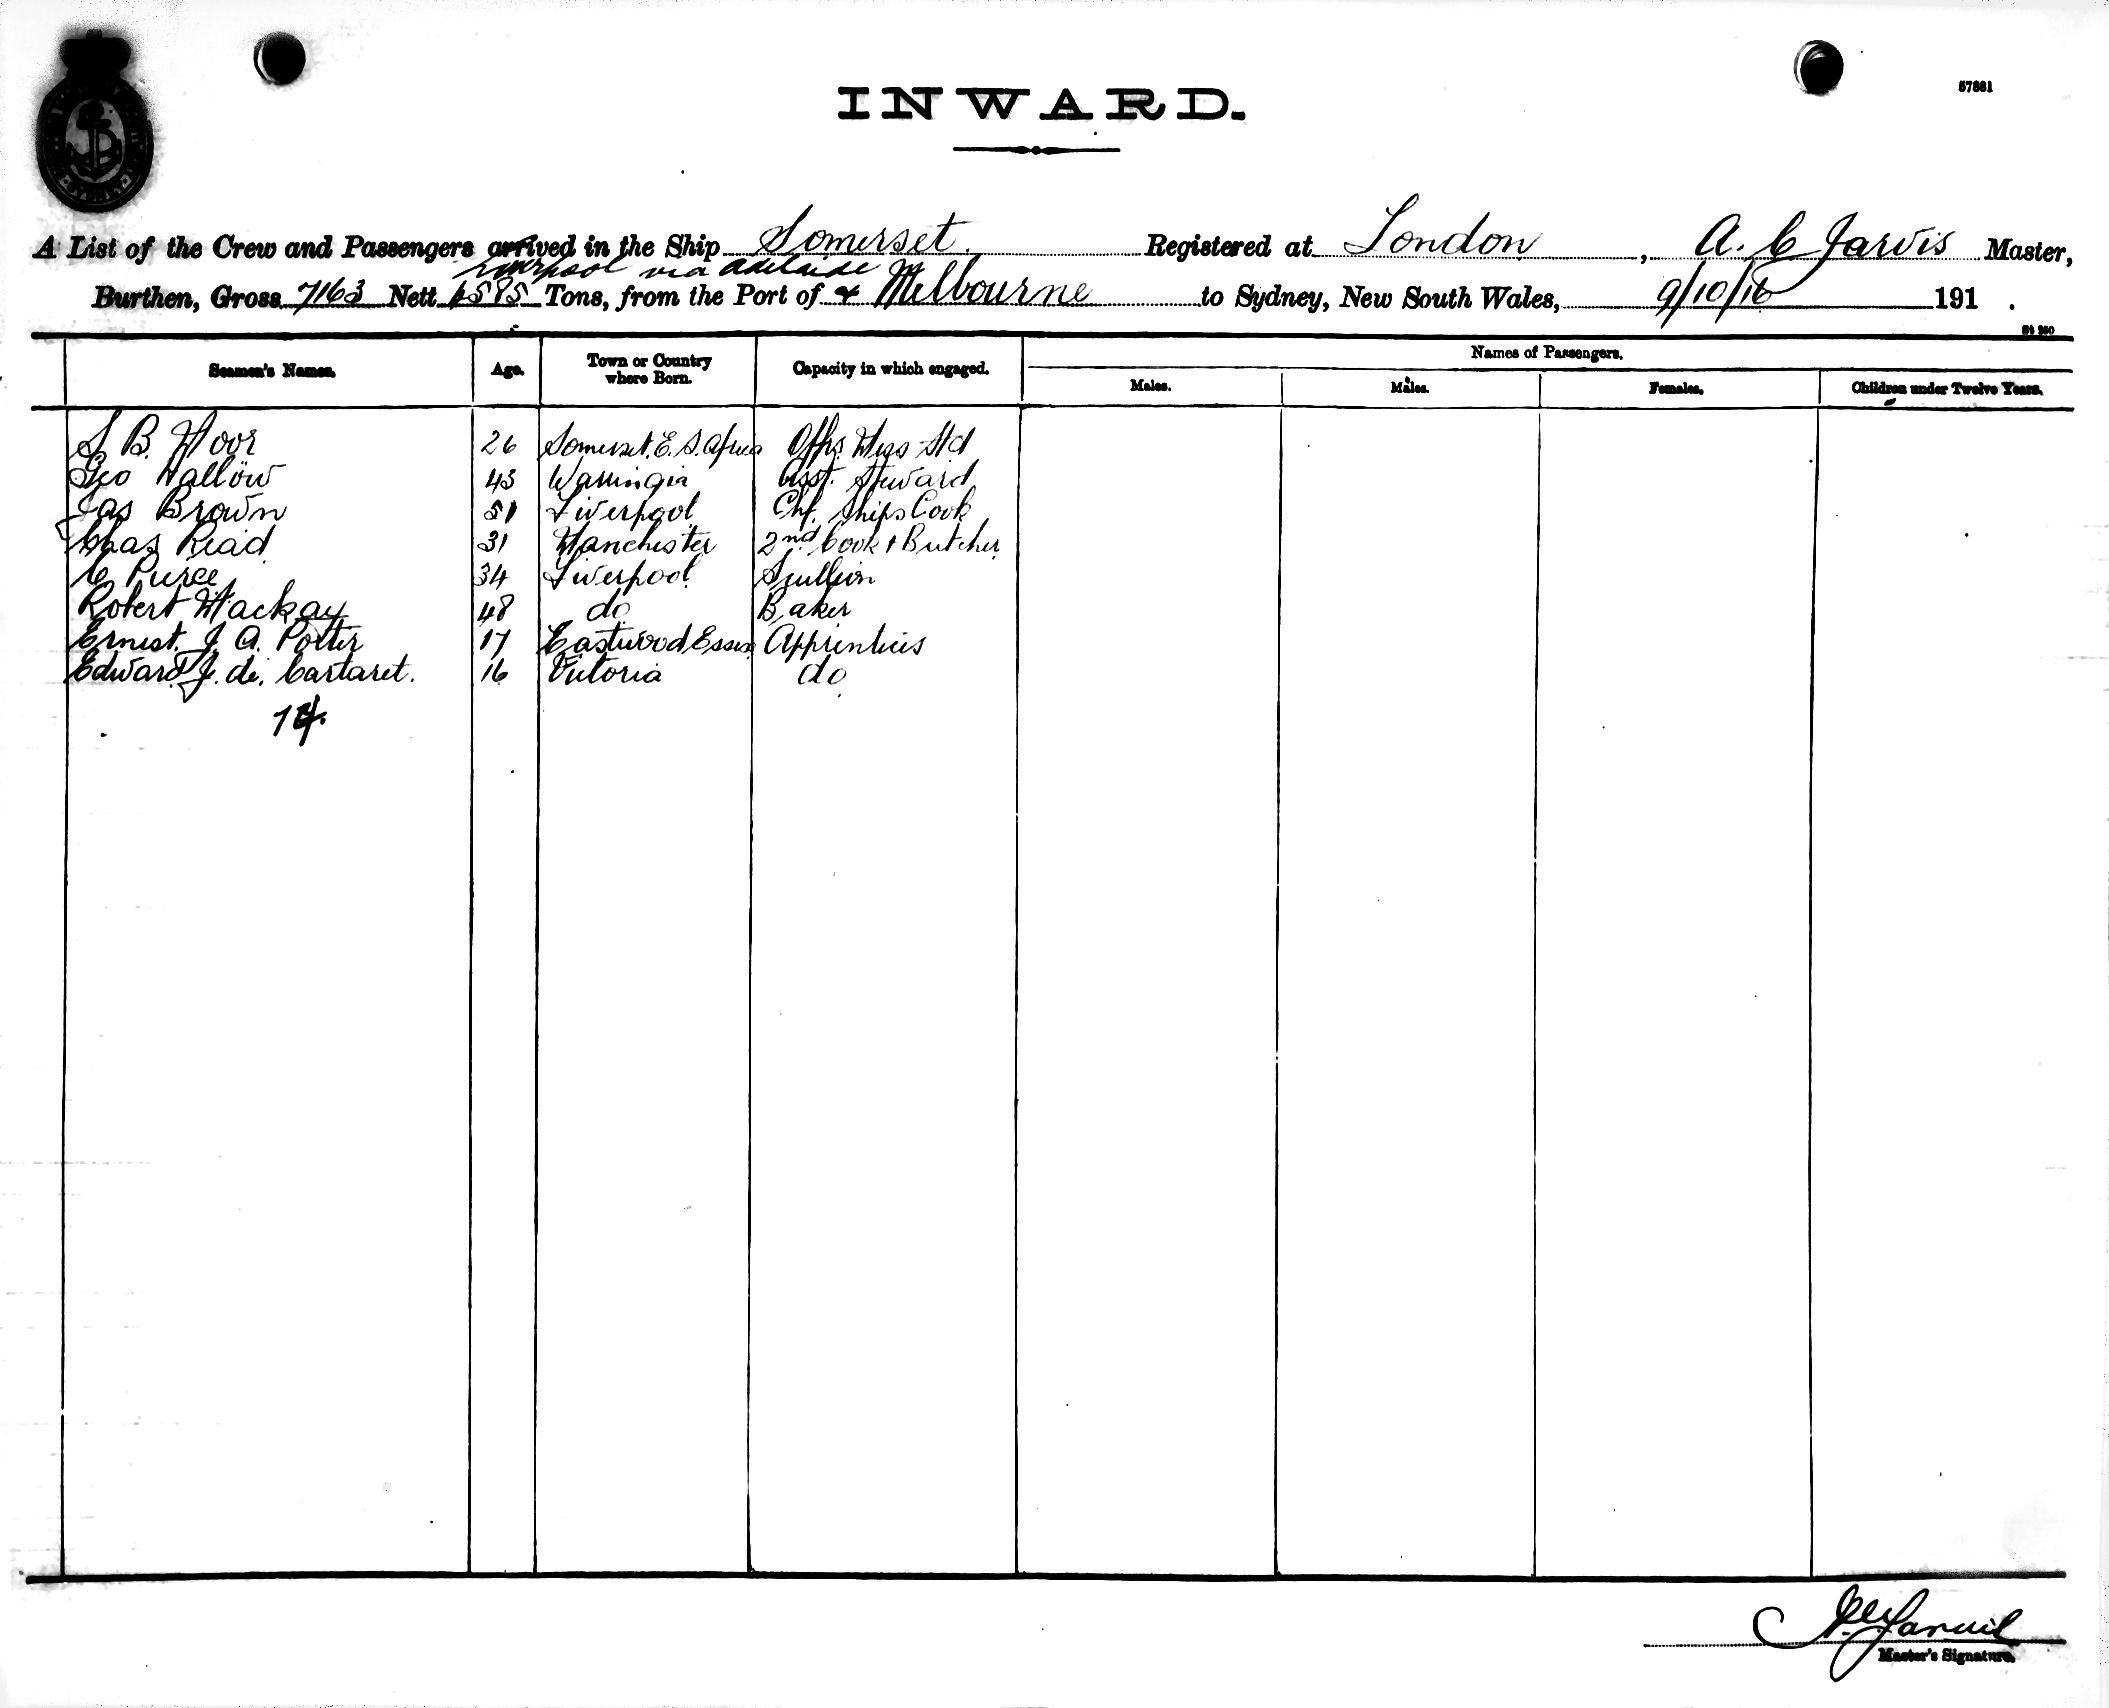 57881
INWARD.
A List of the Crew and Passengers arrived in the Ship Somerset Registered at London, A. C Jarvis Master,
Liverpool via Adelaide
Burthen, Gross 7163 Nett Tons, from the Port of & Melbourne to Sydney, New South Wales, 9/10/16 191 .
Seamen's Names. Age. Town or Country where Born. Capacity in which engaged. Names of Passengers.
Males. Males. Females. Children under Twelve Years.
S. B. Moor 26 Somerset. E. S. Africa Offrs Mess Std
Geo Mallow 43 Asst. Steward
Jas Brown 51 Liverpool Chf. Ships Cook
Chas Read 31 Manchester 2nd Cook & Butcher
C Pierce 34 Liverpool Scullion
Robert Mackay 48 do Baker
Ernest. J. A. Potter 17 Eastwood Essex Apprentices
Edward J. de. Cartaret. 16 Victoria do
Master's Signature.